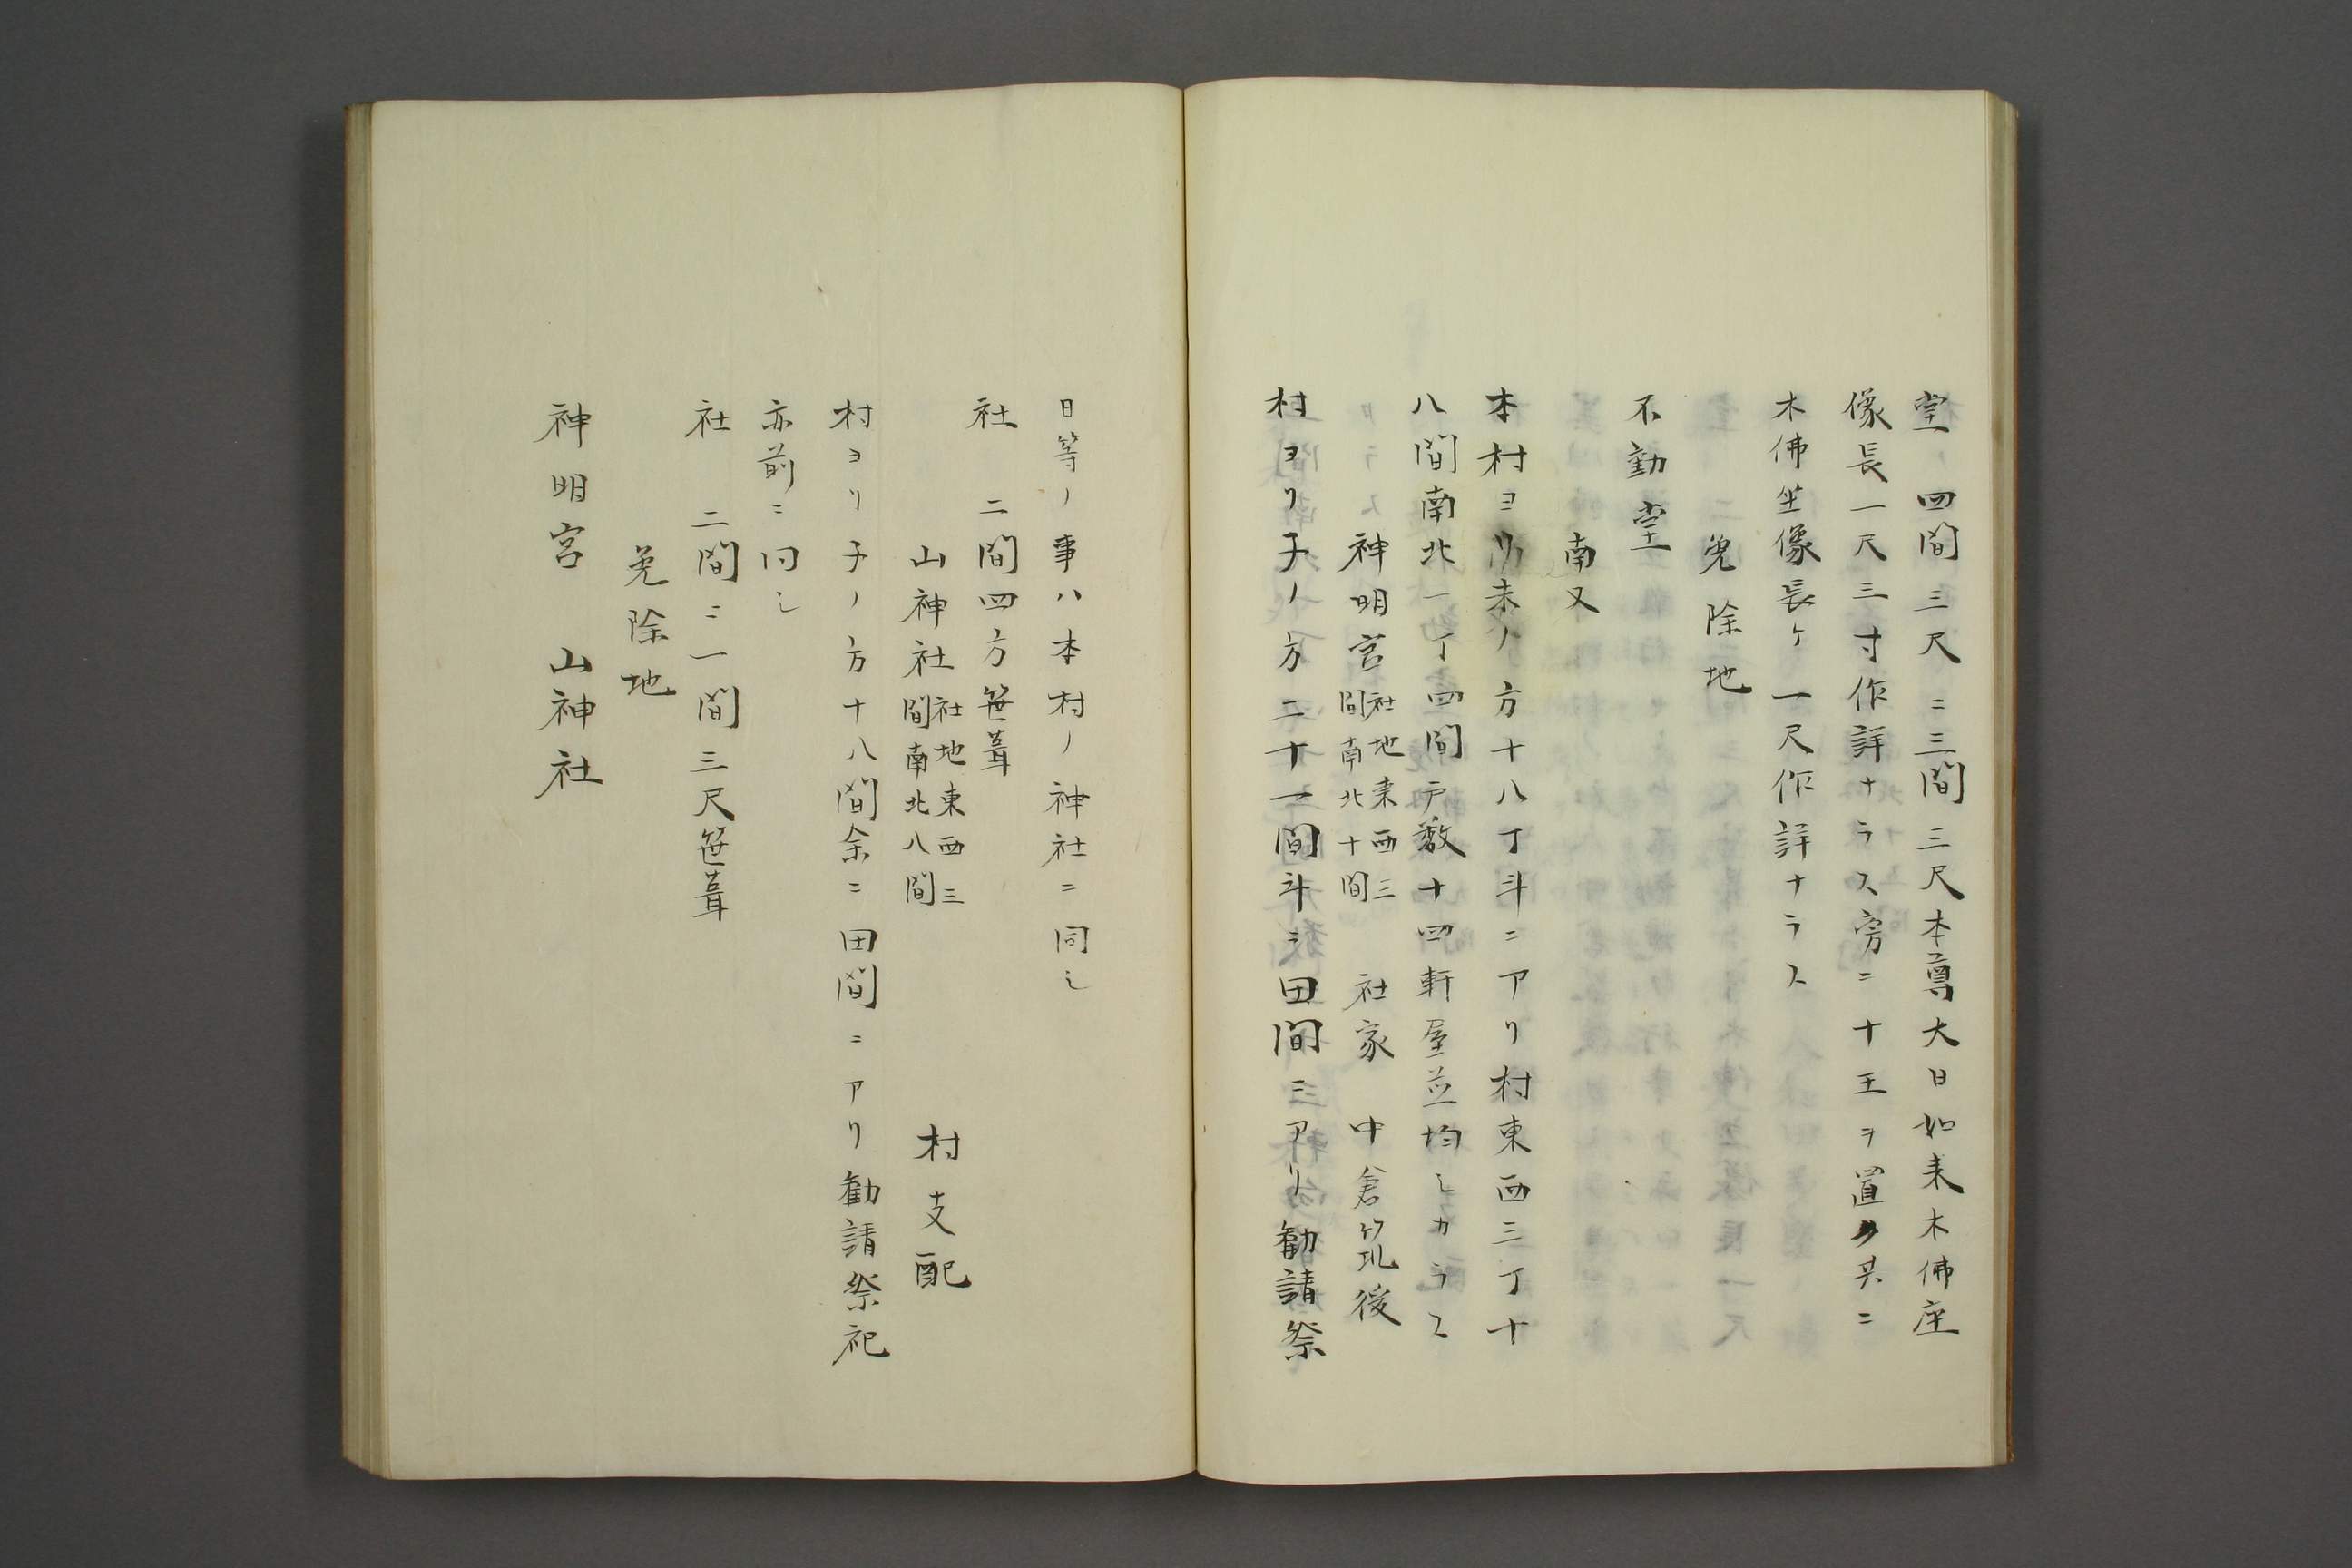 堂　四間三尺ニ三間三尺本尊大日如来木佛座
像長一尺三寸作詳ナラス旁ニ十王ヲ置ク其ニ
木佛坐像長ケ一尺作詳ナラス
免除地
不動堂
南又
本村ヨリ未ノ方十八丁斗ニアリ村東西三丁十
八間南北一丁四間戸数十四軒屋並均シカラス
神明宮　社地東西三
間南北十間　社家　中倉筑後
村ヨリ子ノ方二十一間斗ニ田間ニアリ勧請祭
日等ノ事ハ本村ノ神社ニ同シ
社　二間四方笹葺
山神社　社地東西三
間南北八間　村支配
村ヨリ子ノ方十八間余ニ田間ニアリ勧請祭祀
亦前ニ同シ
社　二間ニ一間三尺笹葺
免除地
神明宮　山神社